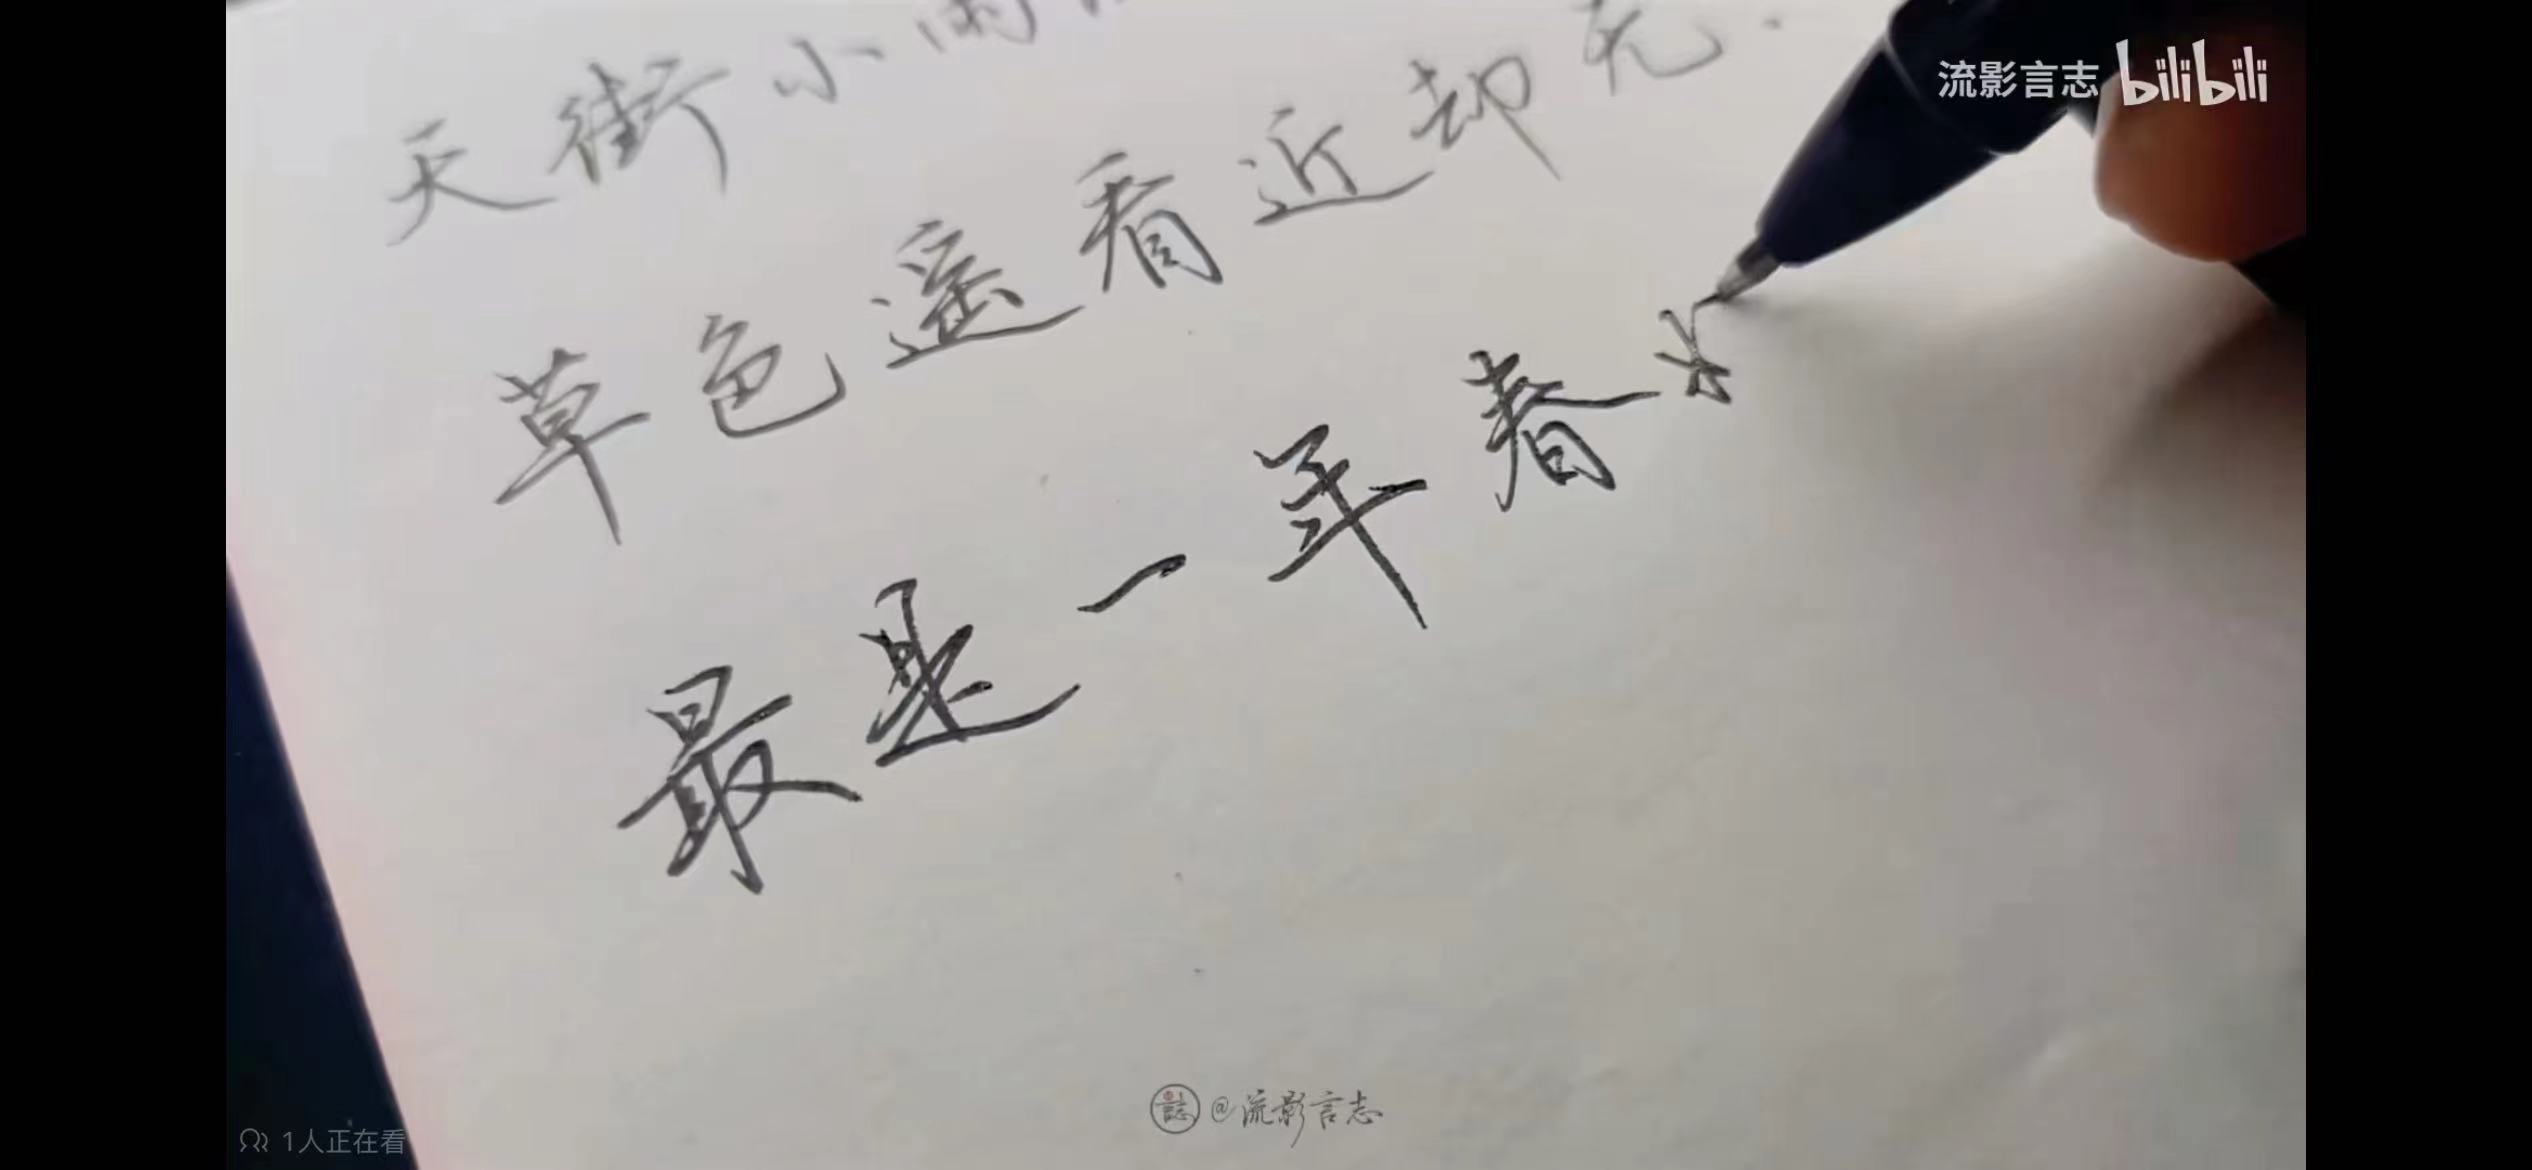 流影言志 bilibili
天街小雨
草色遥看近却无.
最是一年春
誌 @流影言志
1人正在看